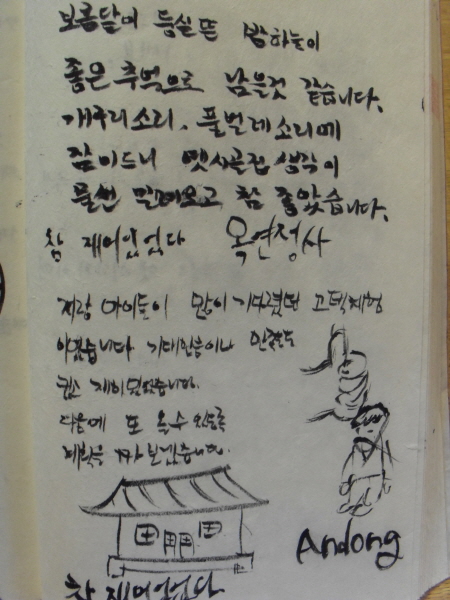 보름달이 둥실 뜬 밤하늘이
좋은 추억으로 남을것 같습니다.
개구리소리, 풀벌레소리에
잠이드니 옛시골집 생각이
물씬 밀려오고 참 좋았습니다.
참 재미있었다 옥연정사
저랑 아이들이 많이 기다렸던 고택체험
이었습니다 기대만큼이나 만족도
재미있었습니다.
다음에 또 올수 있도록
계획을 짜 보겠습니다.
Andong
참 재미있었다